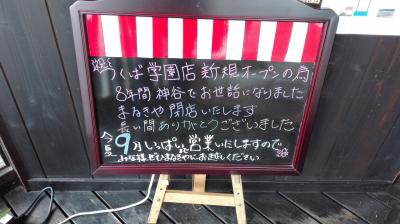 つくば学園店 新規オープンの為
8年間 神谷でお世話になりました
まるきや 閉店いたします
長い間ありがとうございました
今夏 9月いっぱいまで営業いたしますので
みな様ぜひまるきやにお越しください